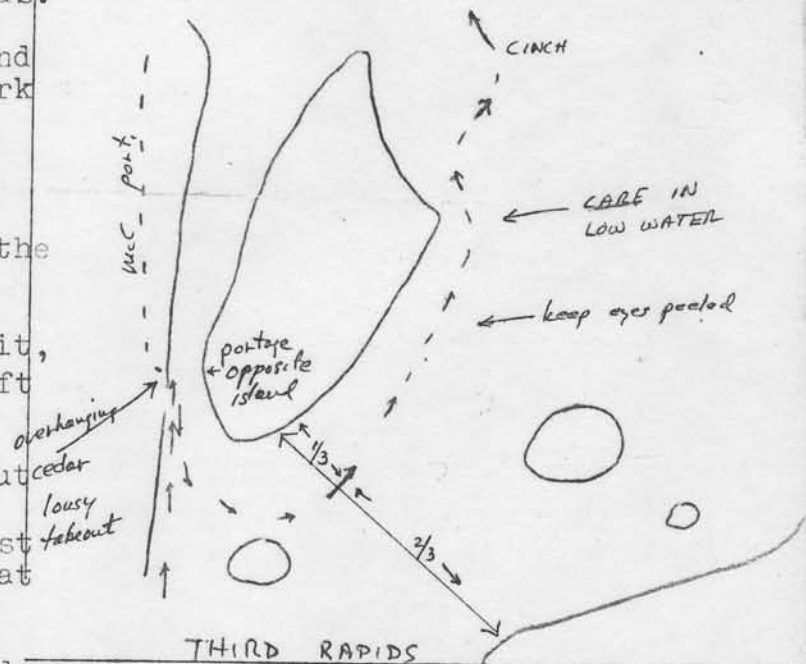 us.
nd
rk
the
it,
ft
ut
st
at
CINCH
port.
CARE IN
LOW WATER
keep eyes peeled
portage
opposite
island
overhanging
cedar
lousy
takeout
1/3
2/3
THIRD RAPIDS